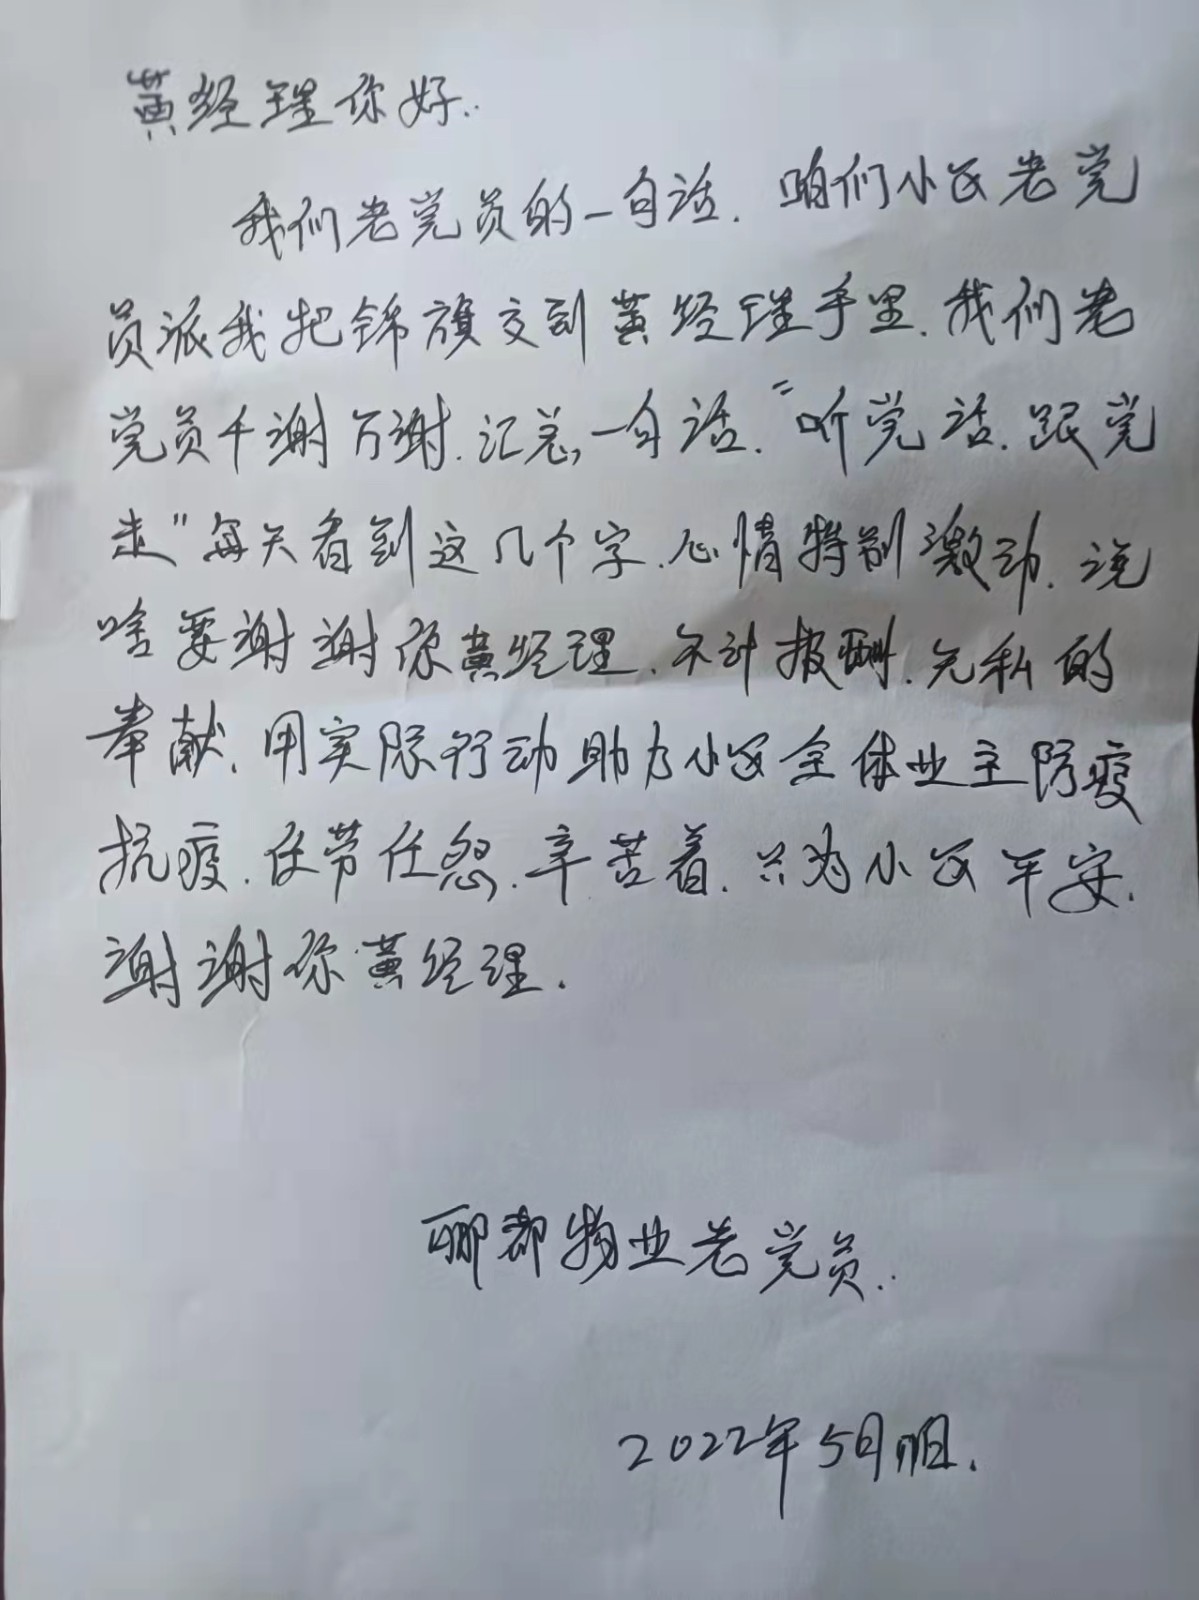 黄经理你好..
我们老党员的一句话.咱们小区老党
员派我把锦旗交到黄经理手里.我们老
党员千谢万谢.汇总一句话."听党话.跟党
走"每天看到这几个字.心情特别激动.说
啥要谢谢你黄经理.不计报酬.无私的
奉献.用实际行动助力小区全体业主防疫
抗疫.任劳任怨.辛苦着.只为小区平安.
谢谢你黄经理.
郦都物业老党员..
2022年5月 日.